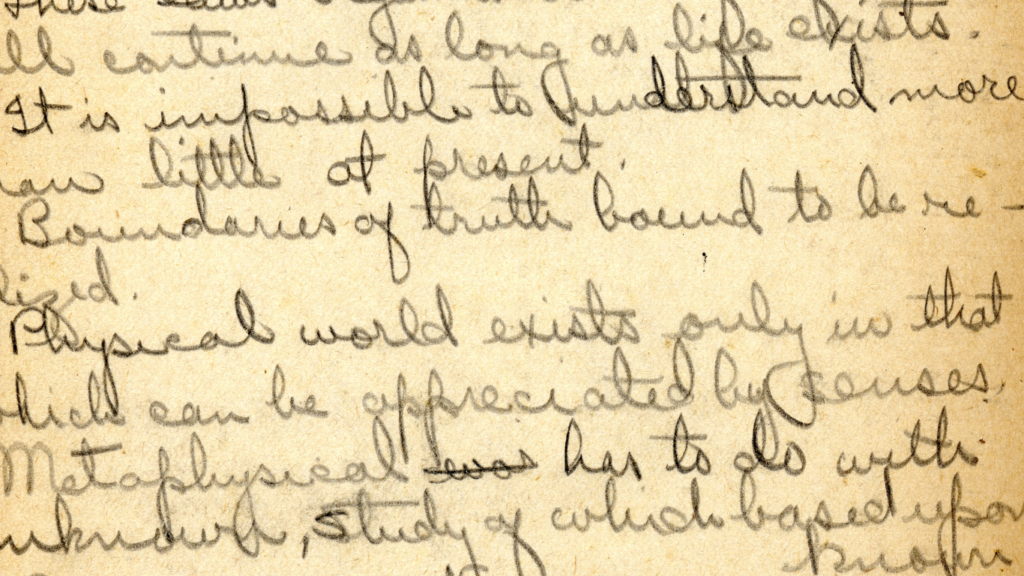 These
ll continue as long as life exists.
It is impossible to understand more
an little at present.
Boundaries of truth bound to be re-
lized.
Physical world exists only in that
which can be appreciated by senses.
Metaphysical was has to do with
unknown, study of which based upon
known